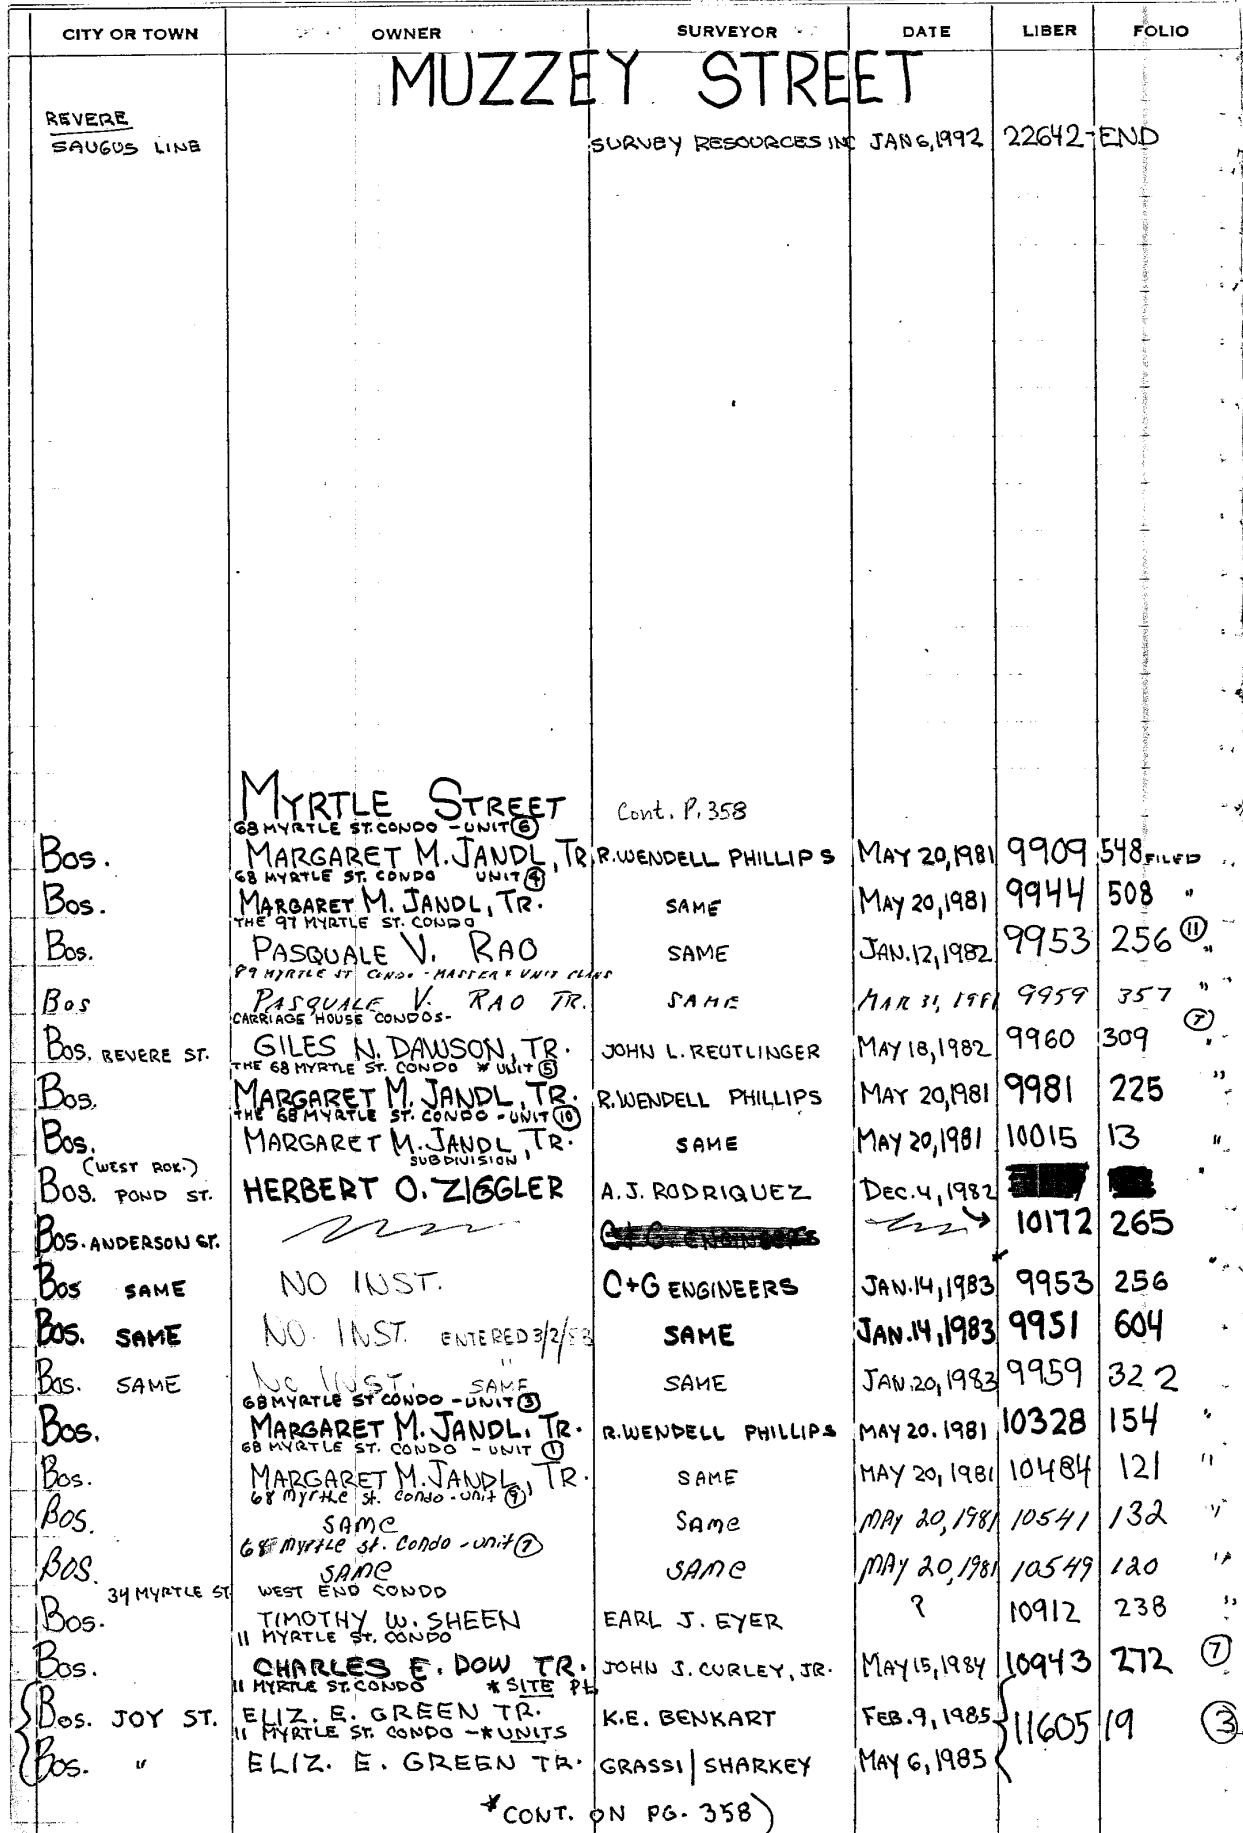 CITY OR TOWN OWNER SURVEYOR DATE LIBER FOLIO
MUZZEY STREET
REVERE
SAUGUS LINE SURVEY RESOURCES INC JAN 6, 1992 22642-END
MYRTLE STREET Cont. P. 358
68 MYRTLE ST. CONDO - UNIT 6
Bos. MARGARET M. JANDL, TR R. WENDELL PHILLIPS MAY 20, 1981 9909 548 FILED
68 MYRTLE ST. CONDO UNIT 4
Bos. MARGARET M. JANDL, TR. SAME MAY 20, 1981 9944 508 "
THE 97 MYRTLE ST. CONDO
Bos. PASQUALE V. RAO SAME JAN. 12, 1982 9953 256 11 "
89 MYRTLE ST CONDO - MASTER & UNIT PLANS
Bos PASQUALE V. RAO TR. SAME MAR 31, 1981 9959 357 "
CARRIAGE HOUSE CONDOS-
Bos. REVERE ST. GILES N. DAWSON, TR. JOHN L. REUTLINGER MAY 18, 1982 9960 309 7 "
THE 68 MYRTLE ST. CONDO * UNIT 5
Bos. MARGARET M. JANDL, TR. R. WENDELL PHILLIPS MAY 20, 1981 9981 225 "
THE 68 MYRTLE ST. CONDO - UNIT 10
Bos. MARGARET M. JANDL, TR. SAME MAY 20, 1981 10015 13 "
(WEST ROX.) SUBDIVISION
Bos. POND ST. HERBERT O. ZIGGLER A.J. RODRIQUEZ DEC. 4, 1982
Bos. ANDERSON ST. C+G ENGINEERS 10172 265
Bos SAME NO INST. C+G ENGINEERS JAN. 14, 1983 9953 256
Bos. SAME NO. INST. ENTERED 3/2/83 SAME JAN. 14, 1983 9951 604
Bos. SAME No INST. " SAME SAME JAN. 20, 1983 9959 322
68 MYRTLE ST CONDO - UNIT 3
Bos. MARGARET M. JANDL, TR. R. WENDELL PHILLIPS MAY 20. 1981 10328 154 "
68 MYRTLE ST. CONDO - UNIT 1
Bos. MARGARET M. JANDL, TR. SAME MAY 20, 1981 10484 121 "
68 Myrtle St. Condo - unit 9
Bos. SAME SAME MAY 20, 1981 10541 132 "
68 Myrtle St. Condo - unit 7
Bos. SAME SAME MAY 20, 1981 10549 120 "
34 MYRTLE ST WEST END CONDO
Bos. TIMOTHY W. SHEEN EARL J. EYER ? 10912 238 "
11 MYRTLE ST. CONDO
Bos. CHARLES E. DOW TR. JOHN J. CURLEY, JR. MAY 15, 1984 10943 272 7
11 MYRTLE ST. CONDO * SITE PL
Bos. JOY ST. ELIZ. E. GREEN TR. K.E. BENKART FEB. 9, 1985 11605 19 3
11 MYRTLE ST. CONDO - * UNITS
Bos. " ELIZ. E. GREEN TR. GRASSI | SHARKEY MAY 6, 1985
* CONT. ON PG. 358)